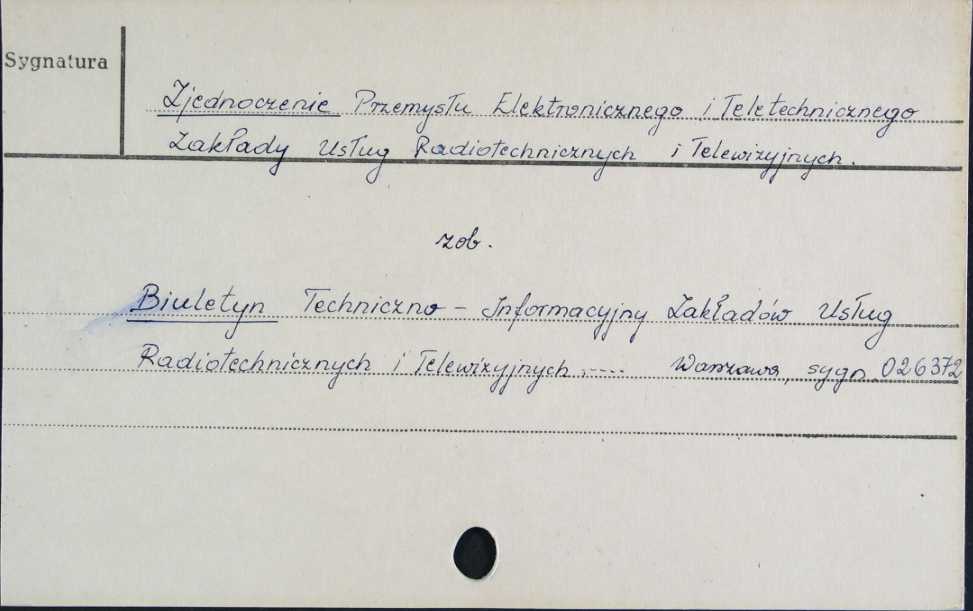 Sygnatura
Zjednoczenie Przemysłu Elektronicznego i Teletechnicznego
Zakłady Usług Radiotechnicznych i Telewizyjnych.
zob.
Biuletyn Techniczno - Informacyjny Zakładów Usług
Radiotechnicznych i Telewizyjnych..... Warszawa, sygn. 026372